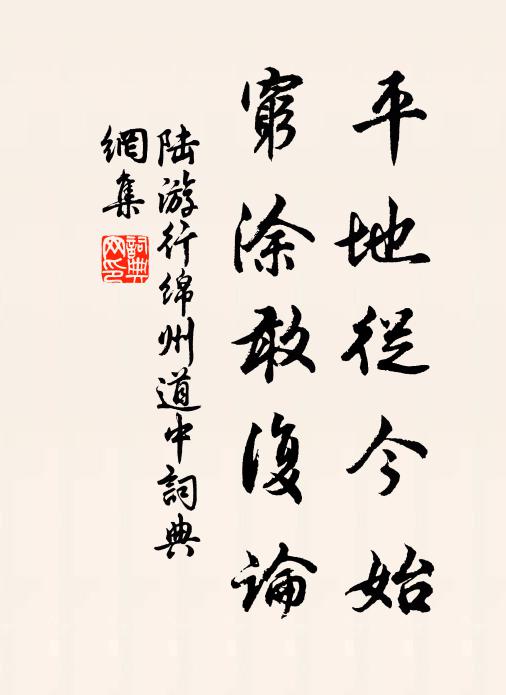 平地從今始
窮涂敢復論
陆游行绵州道中詞典
網集
詞典
网印